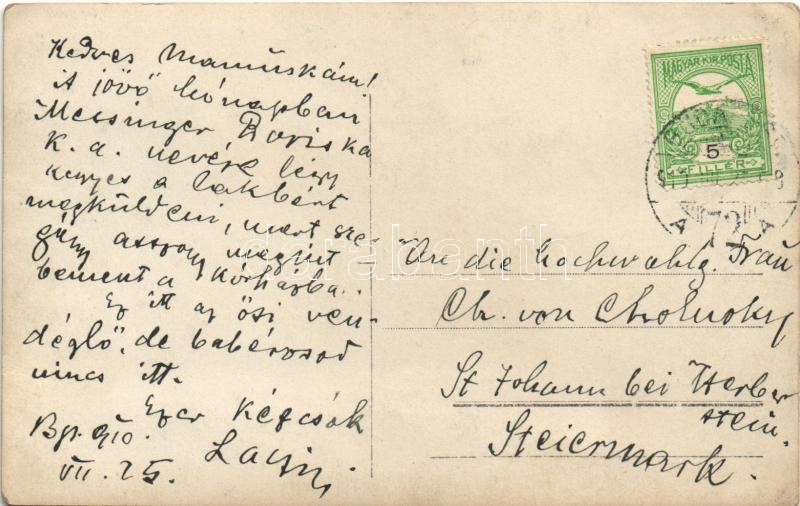 Kedves Mamuskám!
A jövő hónapban
Messinger Boriska
k. a. nevére légy
kegyes a lakbért
megküldeni, mert sze-
gény asszony megint
bement a kórházba.
Ez itt az ősi ven-
déglő, de babérosod
nincs itt.
Ezer kézcsók
Bp. 910.
VII. 25.
MAGYAR KIR. POSTA
5
FILLÉR
BUDAPEST
A 72 A
An die hochwohlg. Frau
Ch. von Cholnoky
St Johann bei Herber
stein.
Steiermark.
darabanth